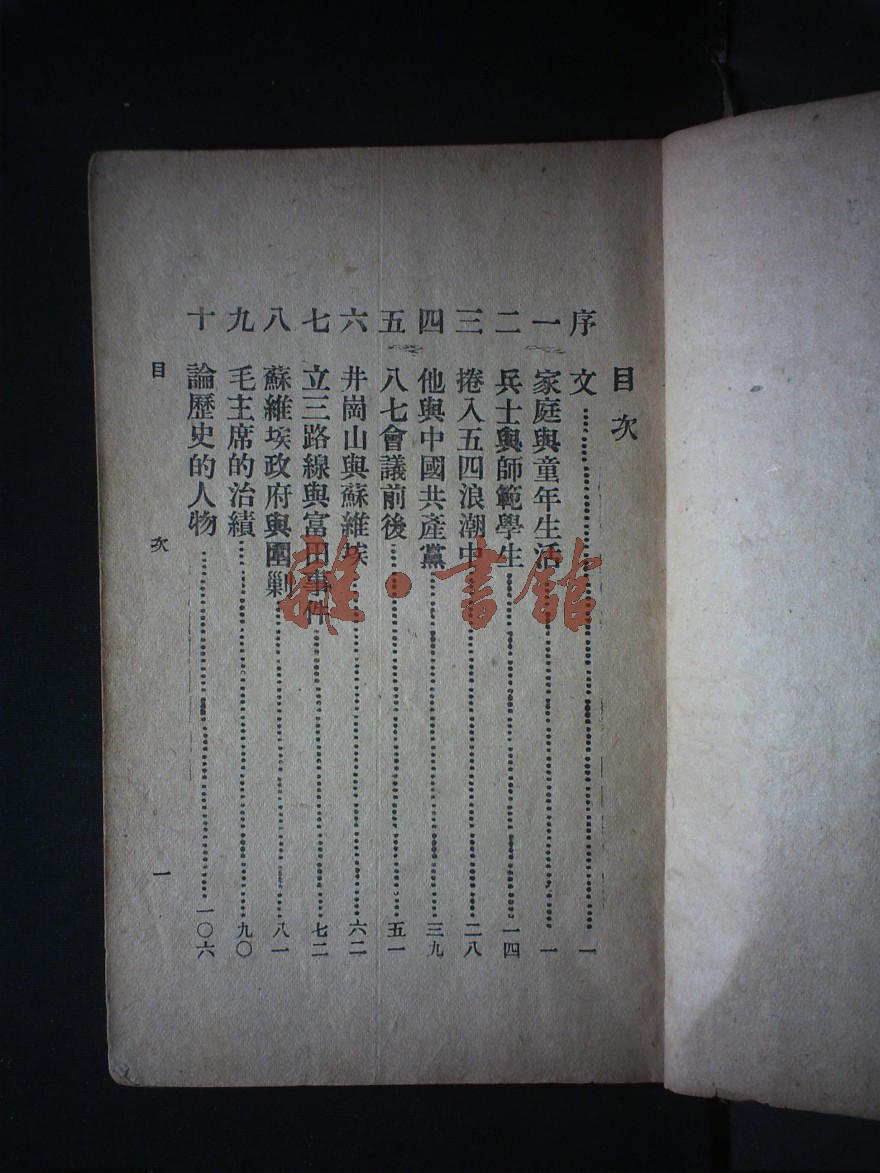 目次
序文……一
一 家庭與童年生活……一
二 兵士與師範學生……一四
三 捲入五四浪潮中……二八
四 他與中國共產黨……三九
五 八七會議前後……五一
六 井崗山與蘇維埃……六二
七 立三路線與富田事件……七二
八 蘇維埃政府與圍剿……八一
九 毛主席的治績……九〇
十 論歷史的人物……一〇六
目次 一
雜·書館